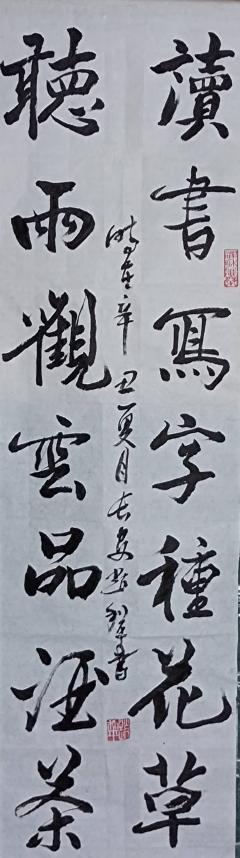 讀書寫字種花草
聽雨觀雲品酒茶
時在辛丑夏月長安
書